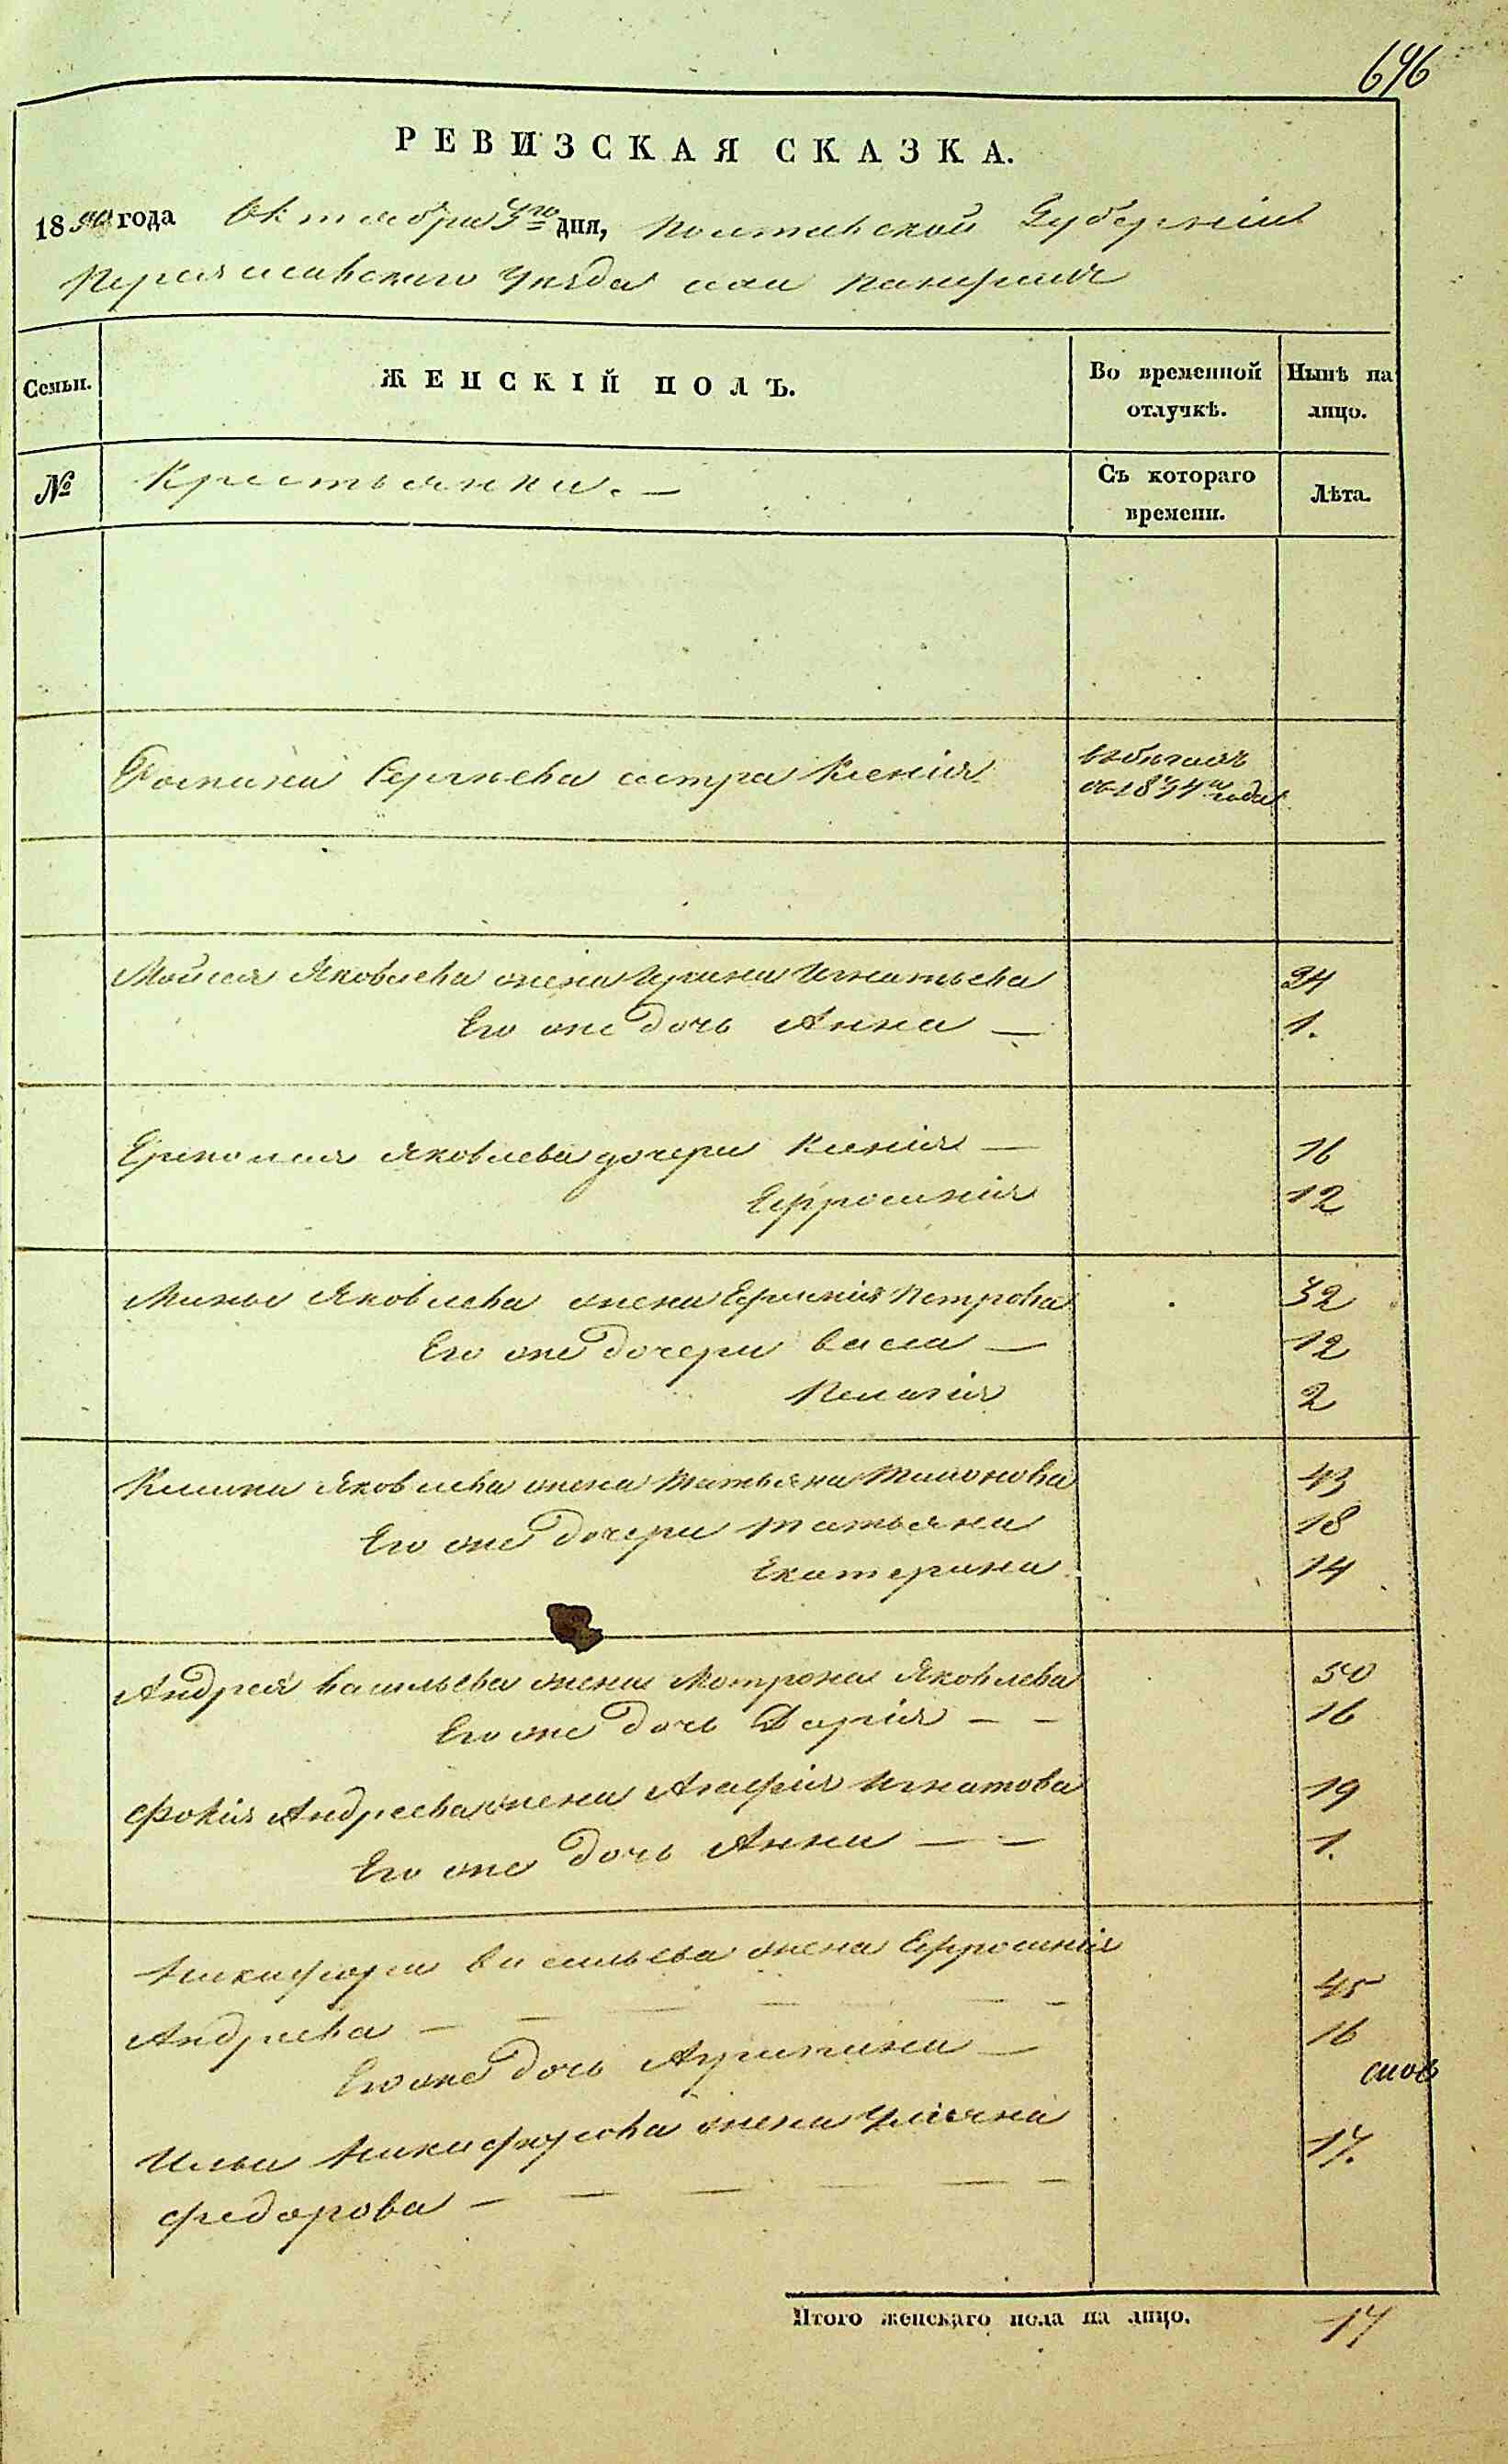 696
РЕВИЗСКАЯ СКАЗКА.
1850 года Октября 3го дня, Полтавской Губерніи
Переяславского Уезда села
Семьи. ЖЕНСКІЙ ПОЛЪ. Во временной отлучкѣ. Нынѣ на лицо.
№ Крестьянки. — Съ котораго времени. Лѣта.
Сергеева сестра Ксенія въ бегахъ
съ 1834го года
Мойсея Яковлева жена Ирина Игнатьева 24
Его же дочь Анна — 1.
Ермолая Яковлева дочери Ксенія — 16
Ефросинія 12
Мины Яковлева жена Ефимия Петрова 32
Его же дочери Васса — 12
Пелагія 2
Климы Яковлева жена Татьяна Тимонова 43
Его же дочери Татьяна 18
Екатерина 14
Андрея Васильева жена Мотрона Яковлева 50
Его же дочь Дарія — — 16
Фокія Андреева жена Агафія Игнатова 19
Его же дочь Анна — — 1.
Никифора Васильева жена Ефросинія
Андреева — — — — — — 45
Его же дочь Агрипина — 16
Ильи Никифорова жена Улияна
Федорова — — — — — 17.
Итого женскаго пола на лицо. 17